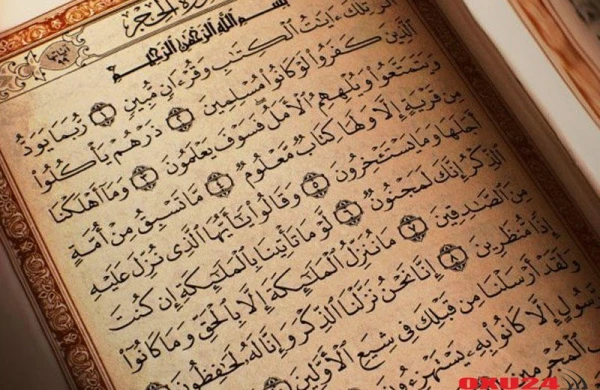 سورة الحجر
بِسْمِ اللَّهِ الرَّحْمَٰنِ الرَّحِيمِ
الر تِلْكَ ءَايَٰتُ الْكِتَٰبِ وَقُرْءَانٍ مُّبِينٍ ١ رُّبَمَا يَوَدُّ
الَّذِينَ كَفَرُوا لَوْ كَانُوا مُسْلِمِينَ ٢ ذَرْهُمْ يَأْكُلُوا
وَيَتَمَتَّعُوا وَيُلْهِهِمُ الْأَمَلُ فَسَوْفَ يَعْلَمُونَ ٣ وَمَا أَهْلَكْنَا
مِن قَرْيَةٍ إِلَّا وَلَهَا كِتَابٌ مَّعْلُومٌ ٤ مَّا تَسْبِقُ مِنْ أُمَّةٍ
أَجَلَهَا وَمَا يَسْتَـْٔخِرُونَ ٥ وَقَالُوا يَٰٓأَيُّهَا الَّذِى نُزِّلَ عَلَيْهِ
الذِّكْرُ إِنَّكَ لَمَجْنُونٌ ٦ لَّوْ مَا تَأْتِينَا بِالْمَلَٰٓئِكَةِ إِن كُنتَ
مِنَ الصَّٰدِقِينَ ٧ مَا نُنَزِّلُ الْمَلَٰٓئِكَةَ إِلَّا بِالْحَقِّ وَمَا كَانُوا
إِذًا مُّنظَرِينَ ٨ إِنَّا نَحْنُ نَزَّلْنَا الذِّكْرَ وَإِنَّا لَهُ لَحَٰفِظُونَ
وَلَقَدْ أَرْسَلْنَا مِن قَبْلِكَ فِى شِيَعِ الْأَوَّلِينَ
رَّسُولٍ إِلَّا كَانُوا بِهِ يَسْتَهْزِءُونَ
الْمُجْرِمِينَ
OXU24